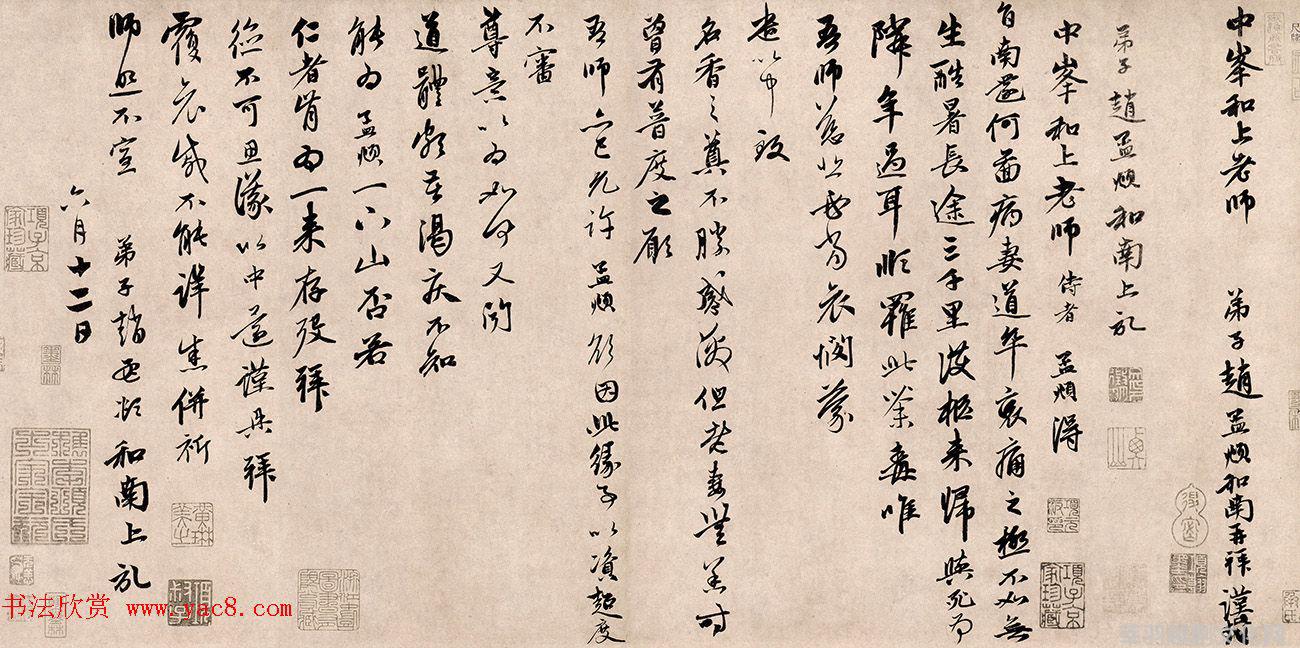 中峯和上老师 弟子趙孟頫和南再拜謹封
弟子趙孟頫和南上記
中峯和上老师侍者孟頫得
旨南還何圖病妻道卒哀痛之極不如無
生酷暑長途三千里護柩来歸與死为
隣年過耳順罹此荼毒唯
吾师慈悲必當哀憫蒙
遣以中致
名香之奠不勝感激但老妻無恙时
曾有普度之願
吾师亦已允許孟頫欲因此緣事以資超度
不審
尊意以为如何又聞
道體頗苦渴疾不知
能为孟頫一下山否若
仁者肯为一来存殁拜
德不可思議以中還謹再拜
覆哀感不能詳悉併祈
师照不宣 弟子趙孟頫和南上記
六月十二日
书法欣赏 www.yac8.com